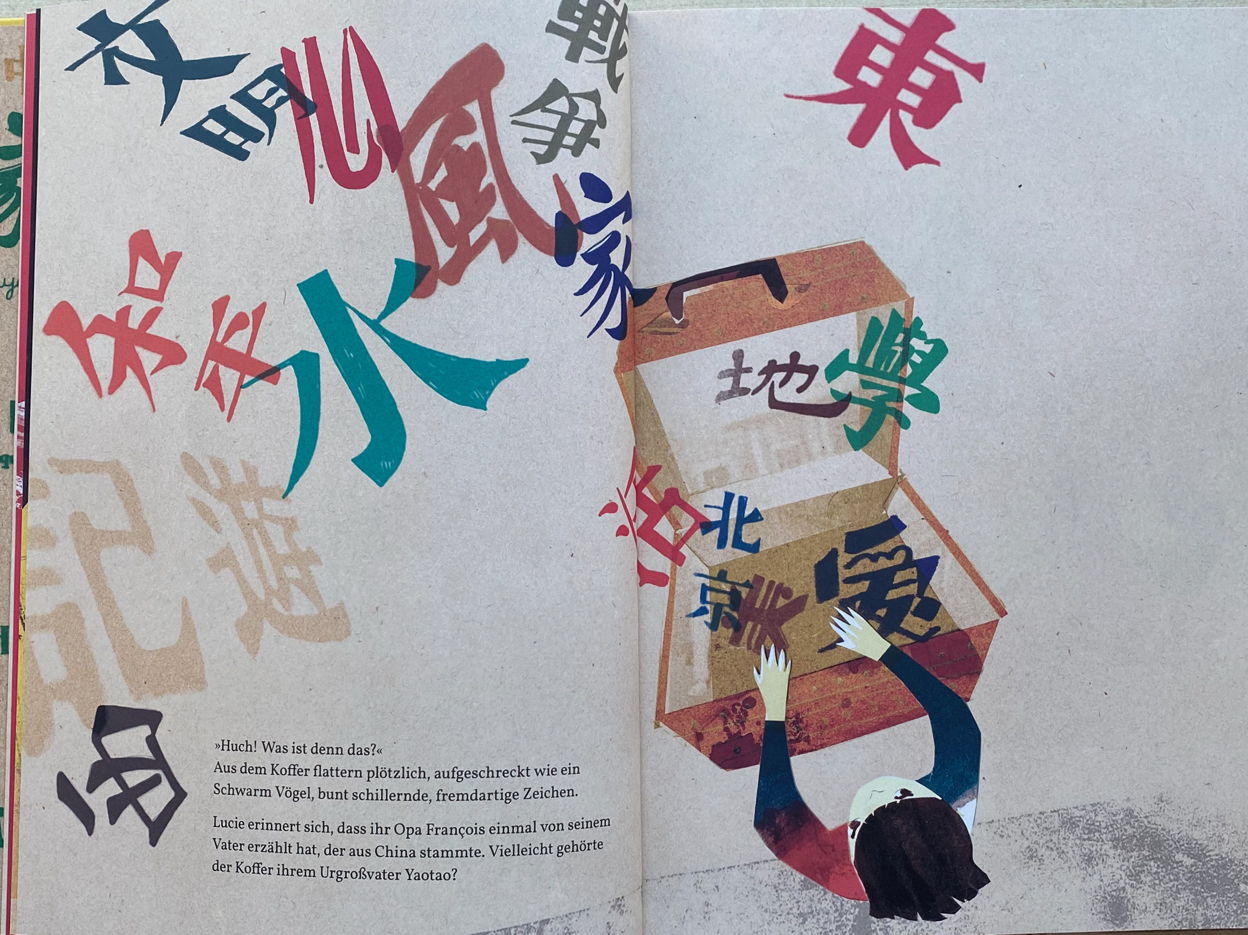 文明
心
風
戰爭
東
家
和平
水
地
學
活
北京
美
愛
»Huch! Was ist denn das?«
Aus dem Koffer flattern plötzlich, aufgeschreckt wie ein
Schwarm Vögel, bunt schillernde, fremdartige Zeichen.
Lucie erinnert sich, dass ihr Opa François einmal von seinem
Vater erzählt hat, der aus China stammte. Vielleicht gehörte
der Koffer ihrem Urgroßvater Yaotao?